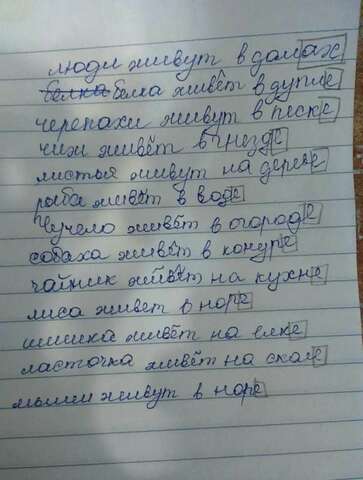 люди живут в домах
белка белка живёт в дупле
черепахи живут в песке
чиж живёт в гнезде
листья живут на дереве
рыба живёт в воде
Чучело живёт в огороде
собака живёт в конуре
чайник живёт на кухне
лиса живет в норе
шишка живёт на елке
ласточка живёт на скале
мыши живут в норе